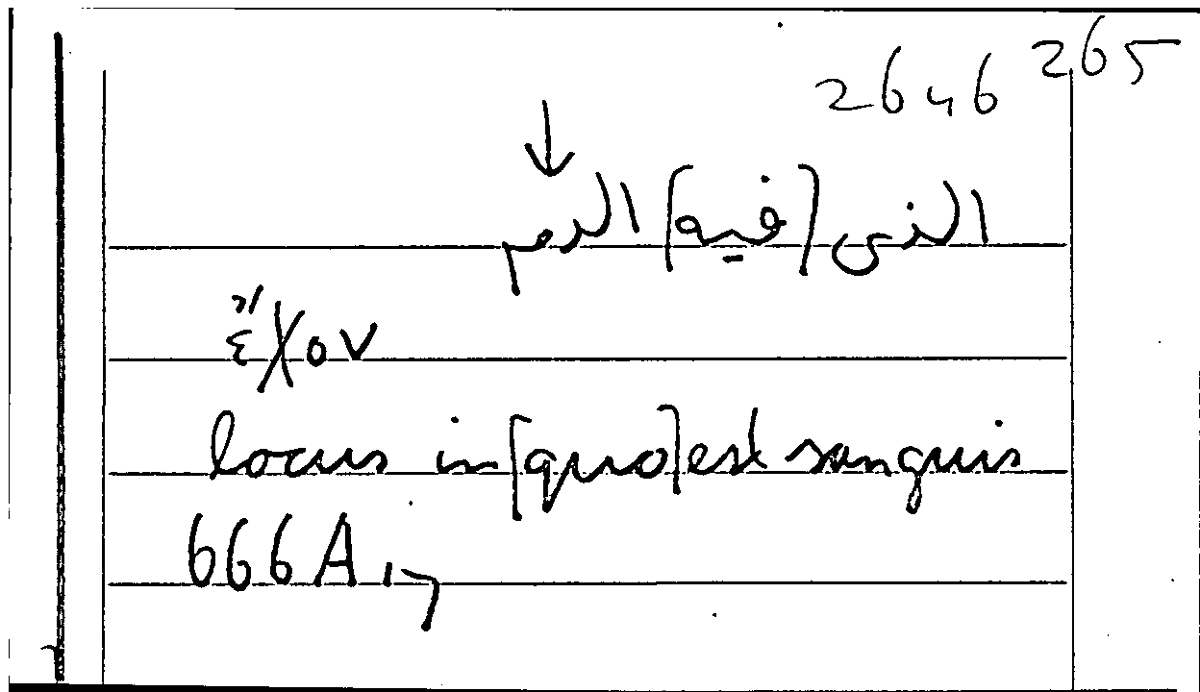 265
2646
↓
الذى [فيه] الدم
ἔχον
locus in [quo] est sanguis
666A17